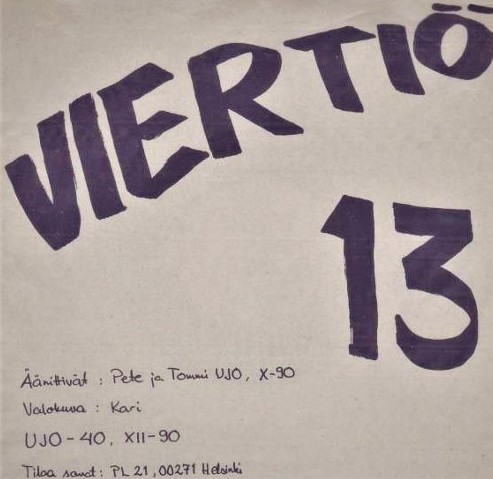 VIERTIÖ
13
Äänittivät : Pete ja Tommi UJO, X-90
Valokuva : Kari
UJO - 40, XII-90
Tilaa sanat : PL 21, 00271 Helsinki